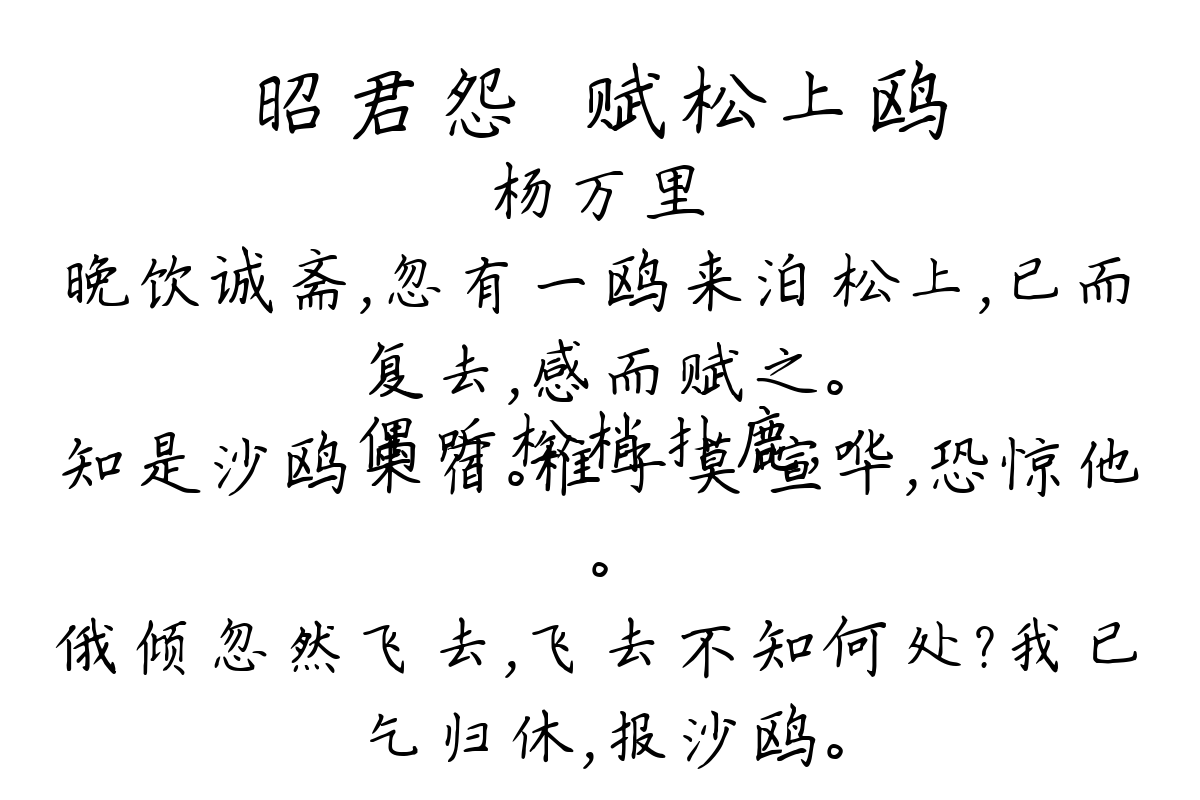 昭君怨 赋松上鸥
杨万里
晚饮诚斋,忽有一鸥来泊松上,已而
复去,感而赋之。
偶听松梢扑鹿,
知是沙鸥来宿。稚子莫喧哗,恐惊他
。
俄倾忽然飞去,飞去不知何处?我已
乞归休,报沙鸥。